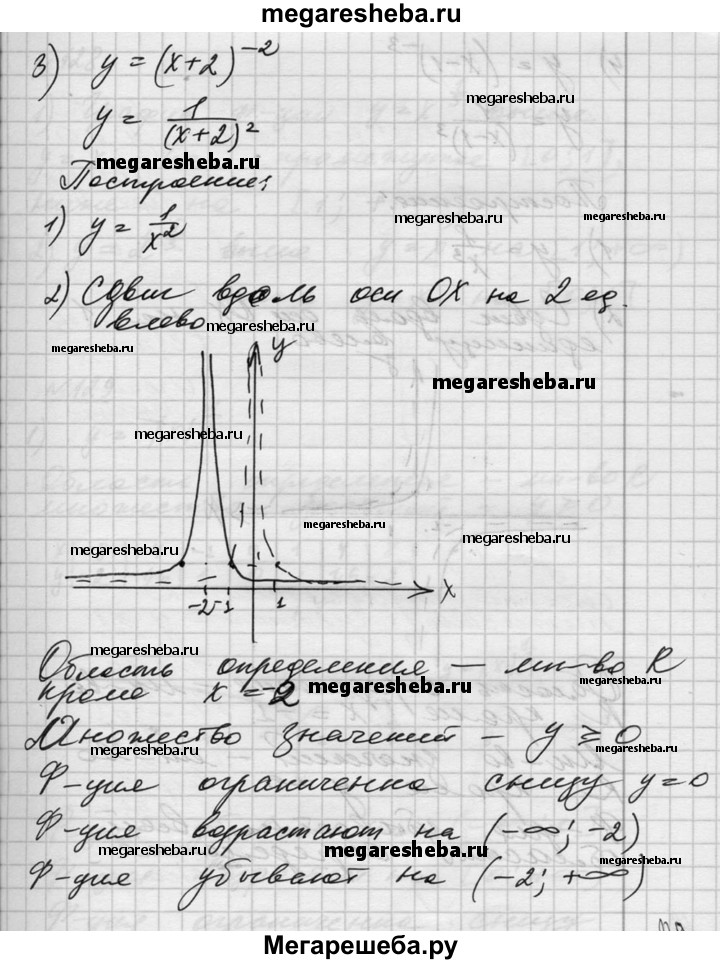 megaresheba.ru
3) y = (x+2)^-2
megaresheba.ru
y = 1/(x+2)^2
megaresheba.ru
Построение:
megaresheba.ru
1) y = 1/x^2
megaresheba.ru
2) Сдвиг вдоль оси OX на 2 ед.
влево
megaresheba.ru
megaresheba.ru
y
megaresheba.ru
megaresheba.ru
megaresheba.ru
megaresheba.ru
megaresheba.ru
-2 -1 1 x
megaresheba.ru
Область определения — мн-во R
кроме x = -2
megaresheba.ru
Множество значений – y ≥ 0
megaresheba.ru
megaresheba.ru
Ф-ция ограниченна снизу y=0
Ф-ция возрастают на (-∞; -2)
megaresheba.ru
megaresheba.ru
megaresheba.ru
Ф-ция убывают на (-2; +∞)
Мегарешеба.ру